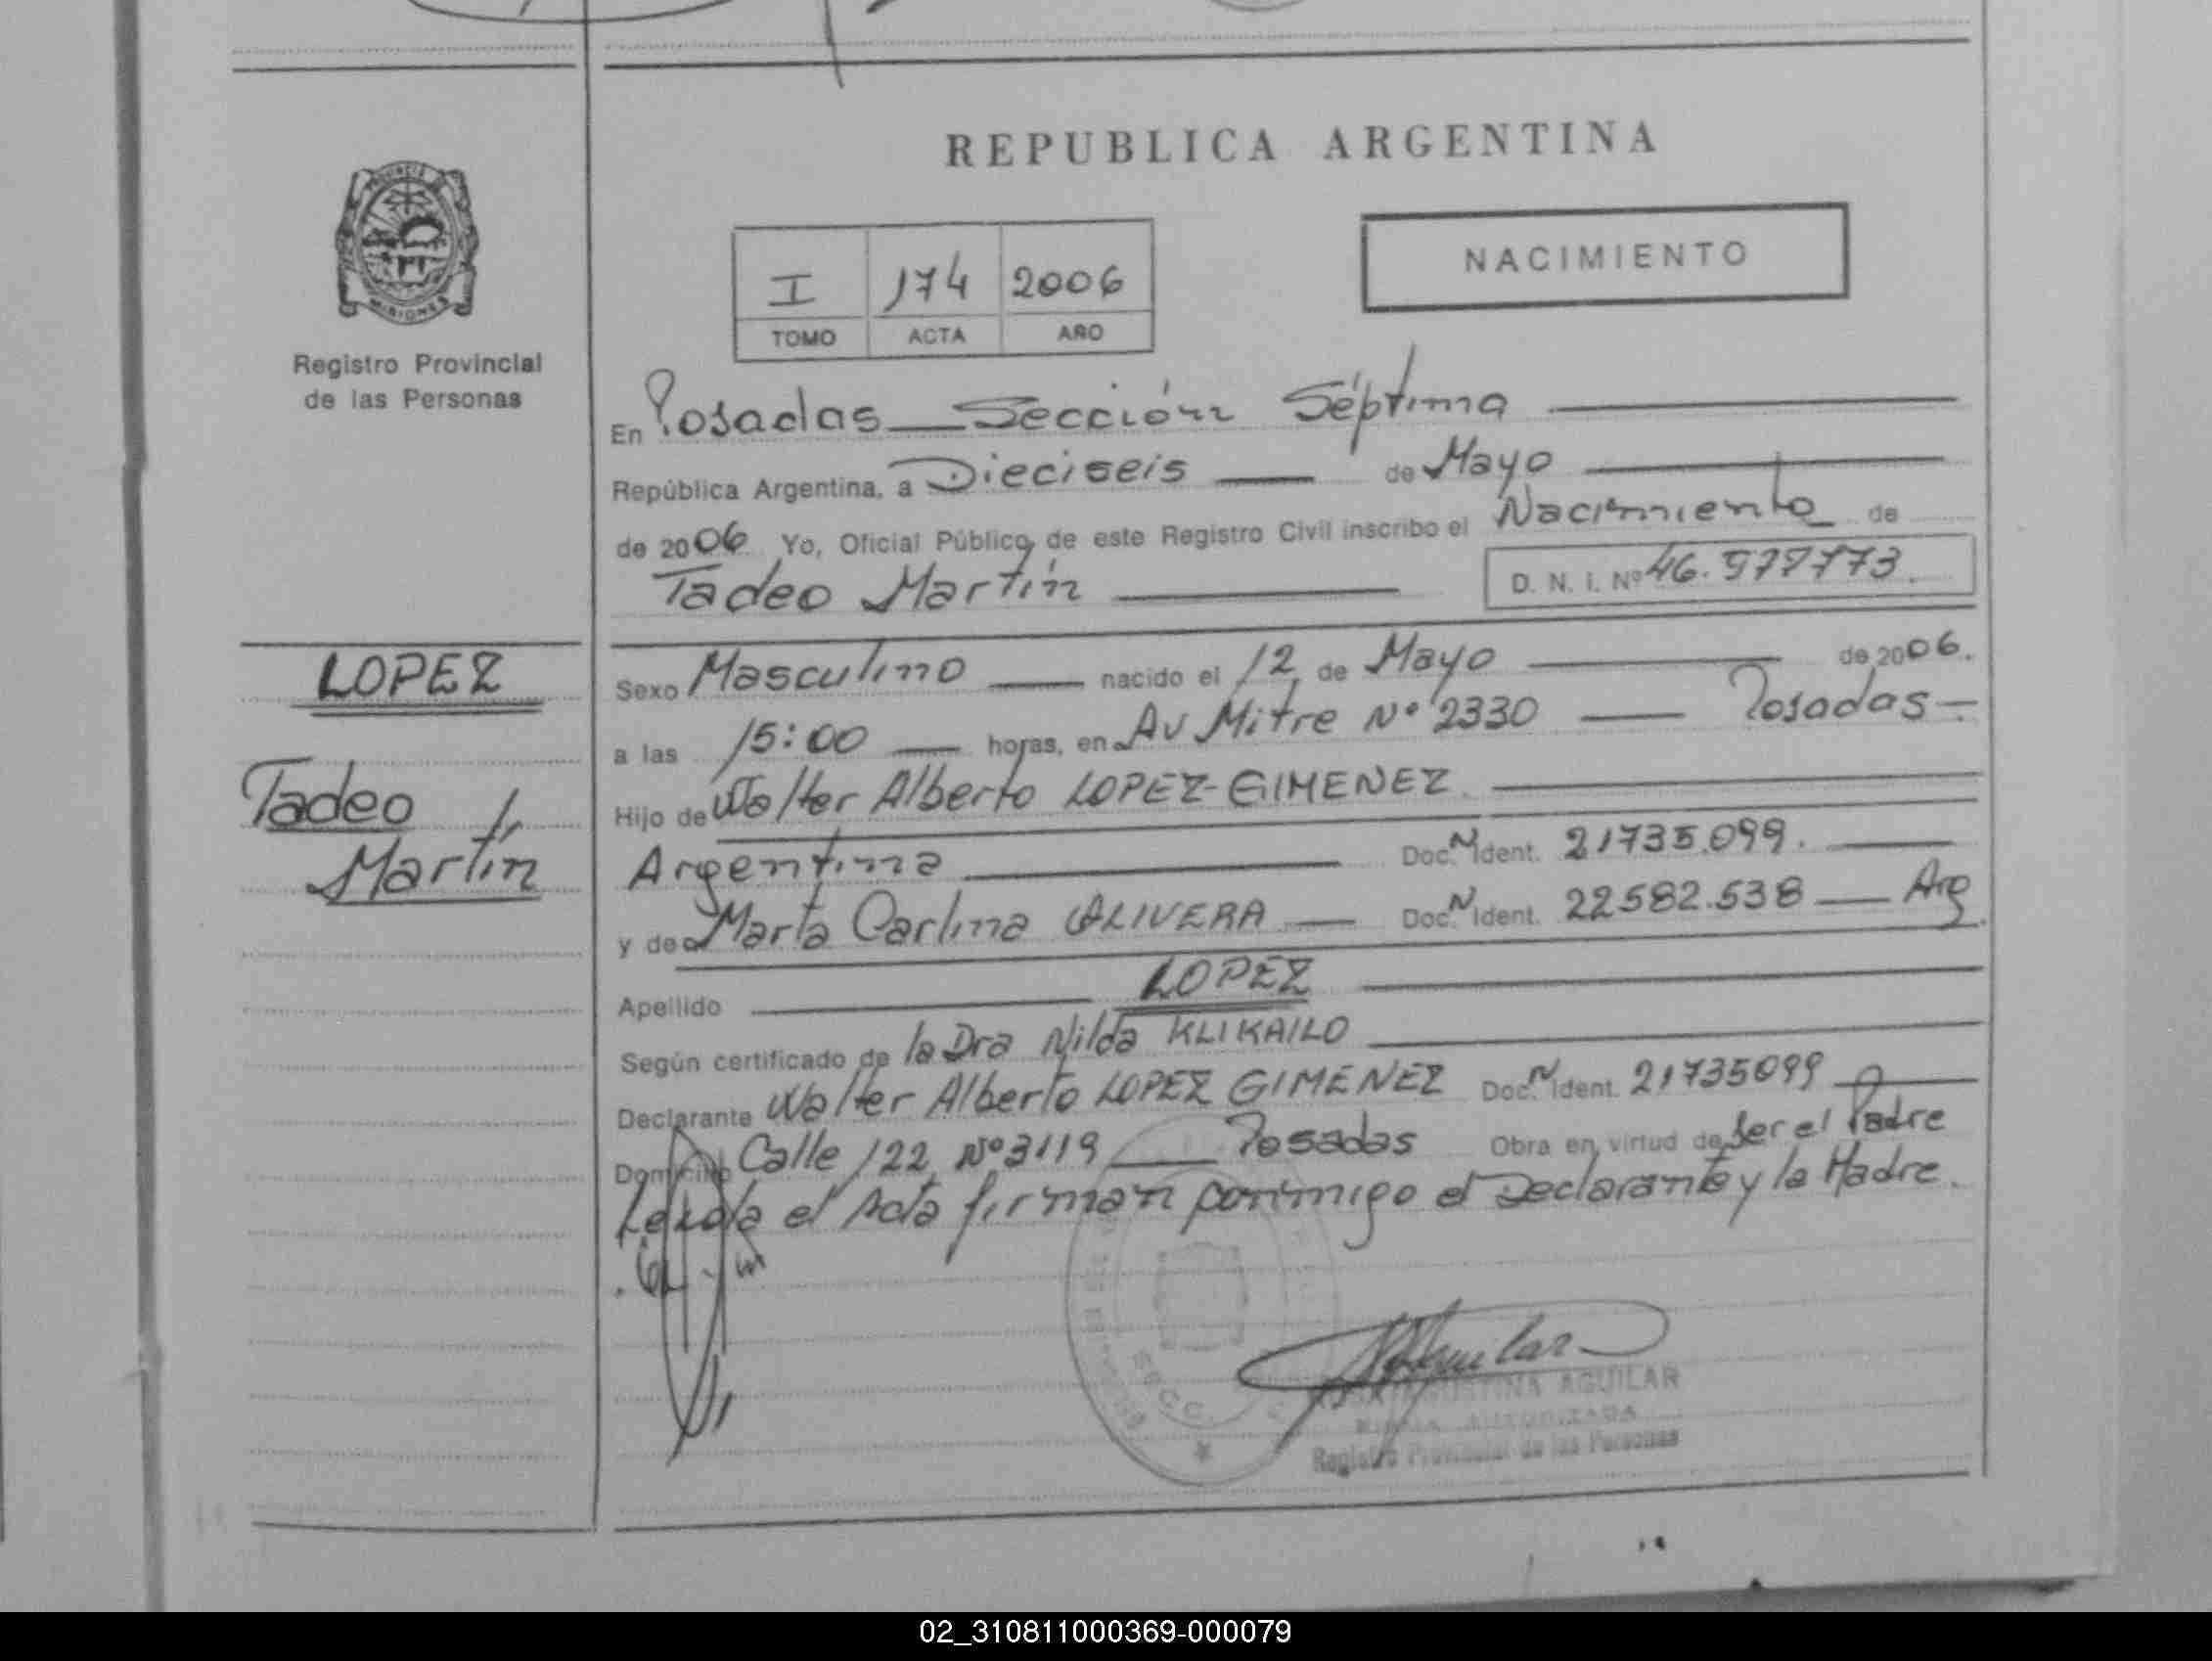 REPUBLICA ARGENTINA
PROVINCIA DE
MISIONES
Registro Provincial
de las Personas
NACIMIENTO
I 174 2006
TOMO ACTA AÑO
En Posadas Sección Séptima
República Argentina, a Dieciseis de Mayo
de 2006 Yo, Oficial Público, de este Registro Civil inscribo el Nacimiento de
Tadeo Martín D. N. I. Nº 46.977773.
LOPEZ
Tadeo
Martín
Sexo Masculino nacido el 12 de Mayo de 2006.
a las 15:00 horas, en Av Mitre Nº 2330 Posadas
Hijo de Walter Alberto LOPEZ-GIMENEZ.
Argentina Doc. N Ident. 21735.099.
y de Marta Carlina OLIVERA Doc. N Ident. 22582.538 Arg.
Apellido LOPEZ
Según certificado de la Dra Nilda KLIKAILO
Declarante Walter Alberto LOPEZ GIMENEZ Doc. N Ident. 21735099
Domicilio Calle 122 Nº 3119 Posadas Obra en virtud de Ser el Padre
Leída el Acta firman conmigo el Declarante y la Madre.
AGUSTINA AGUILAR
FIRMA AUTORIZADA
Registro Provincial de las Personas
02_310811000369-000079